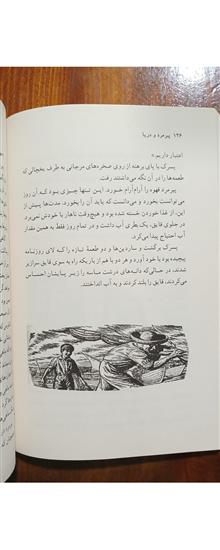 ۱۲۶ پیرمرد و دریا
اعتبار داریم.»
پسرک با پای برهنه از روی صخره‌های مرجانی به طرف یخچالی که
طعمه‌ها را در آن نگه می‌داشتند رفت.
پیرمرد قهوه را آرام آرام خورد. این تنها چیزی بود که آن روز
می‌توانست بخورد و می‌دانست که باید آن را بخورد. مدت‌ها پیش از
این، از غذا خوردن خسته شده بود و هیچ‌وقت ناهار با خودش نمی‌برد.
در جلوی قایق، یک بطری آب داشت و در تمام روز فقط به همین مقدار
آب احتیاج پیدا می‌کرد.
پسرک برگشت و ساردین‌ها و دو طعمهٔ تازه که لای روزنامه
پیچیده بود با خود آورد و هر دو با هم از باریکه راه به سوی قایق سرازیر
شدند، در حالی‌که دانه‌های درشت ماسه را زیر پایشان احساس
می‌کردند، قایق را بلند کردند و به آب انداختند.